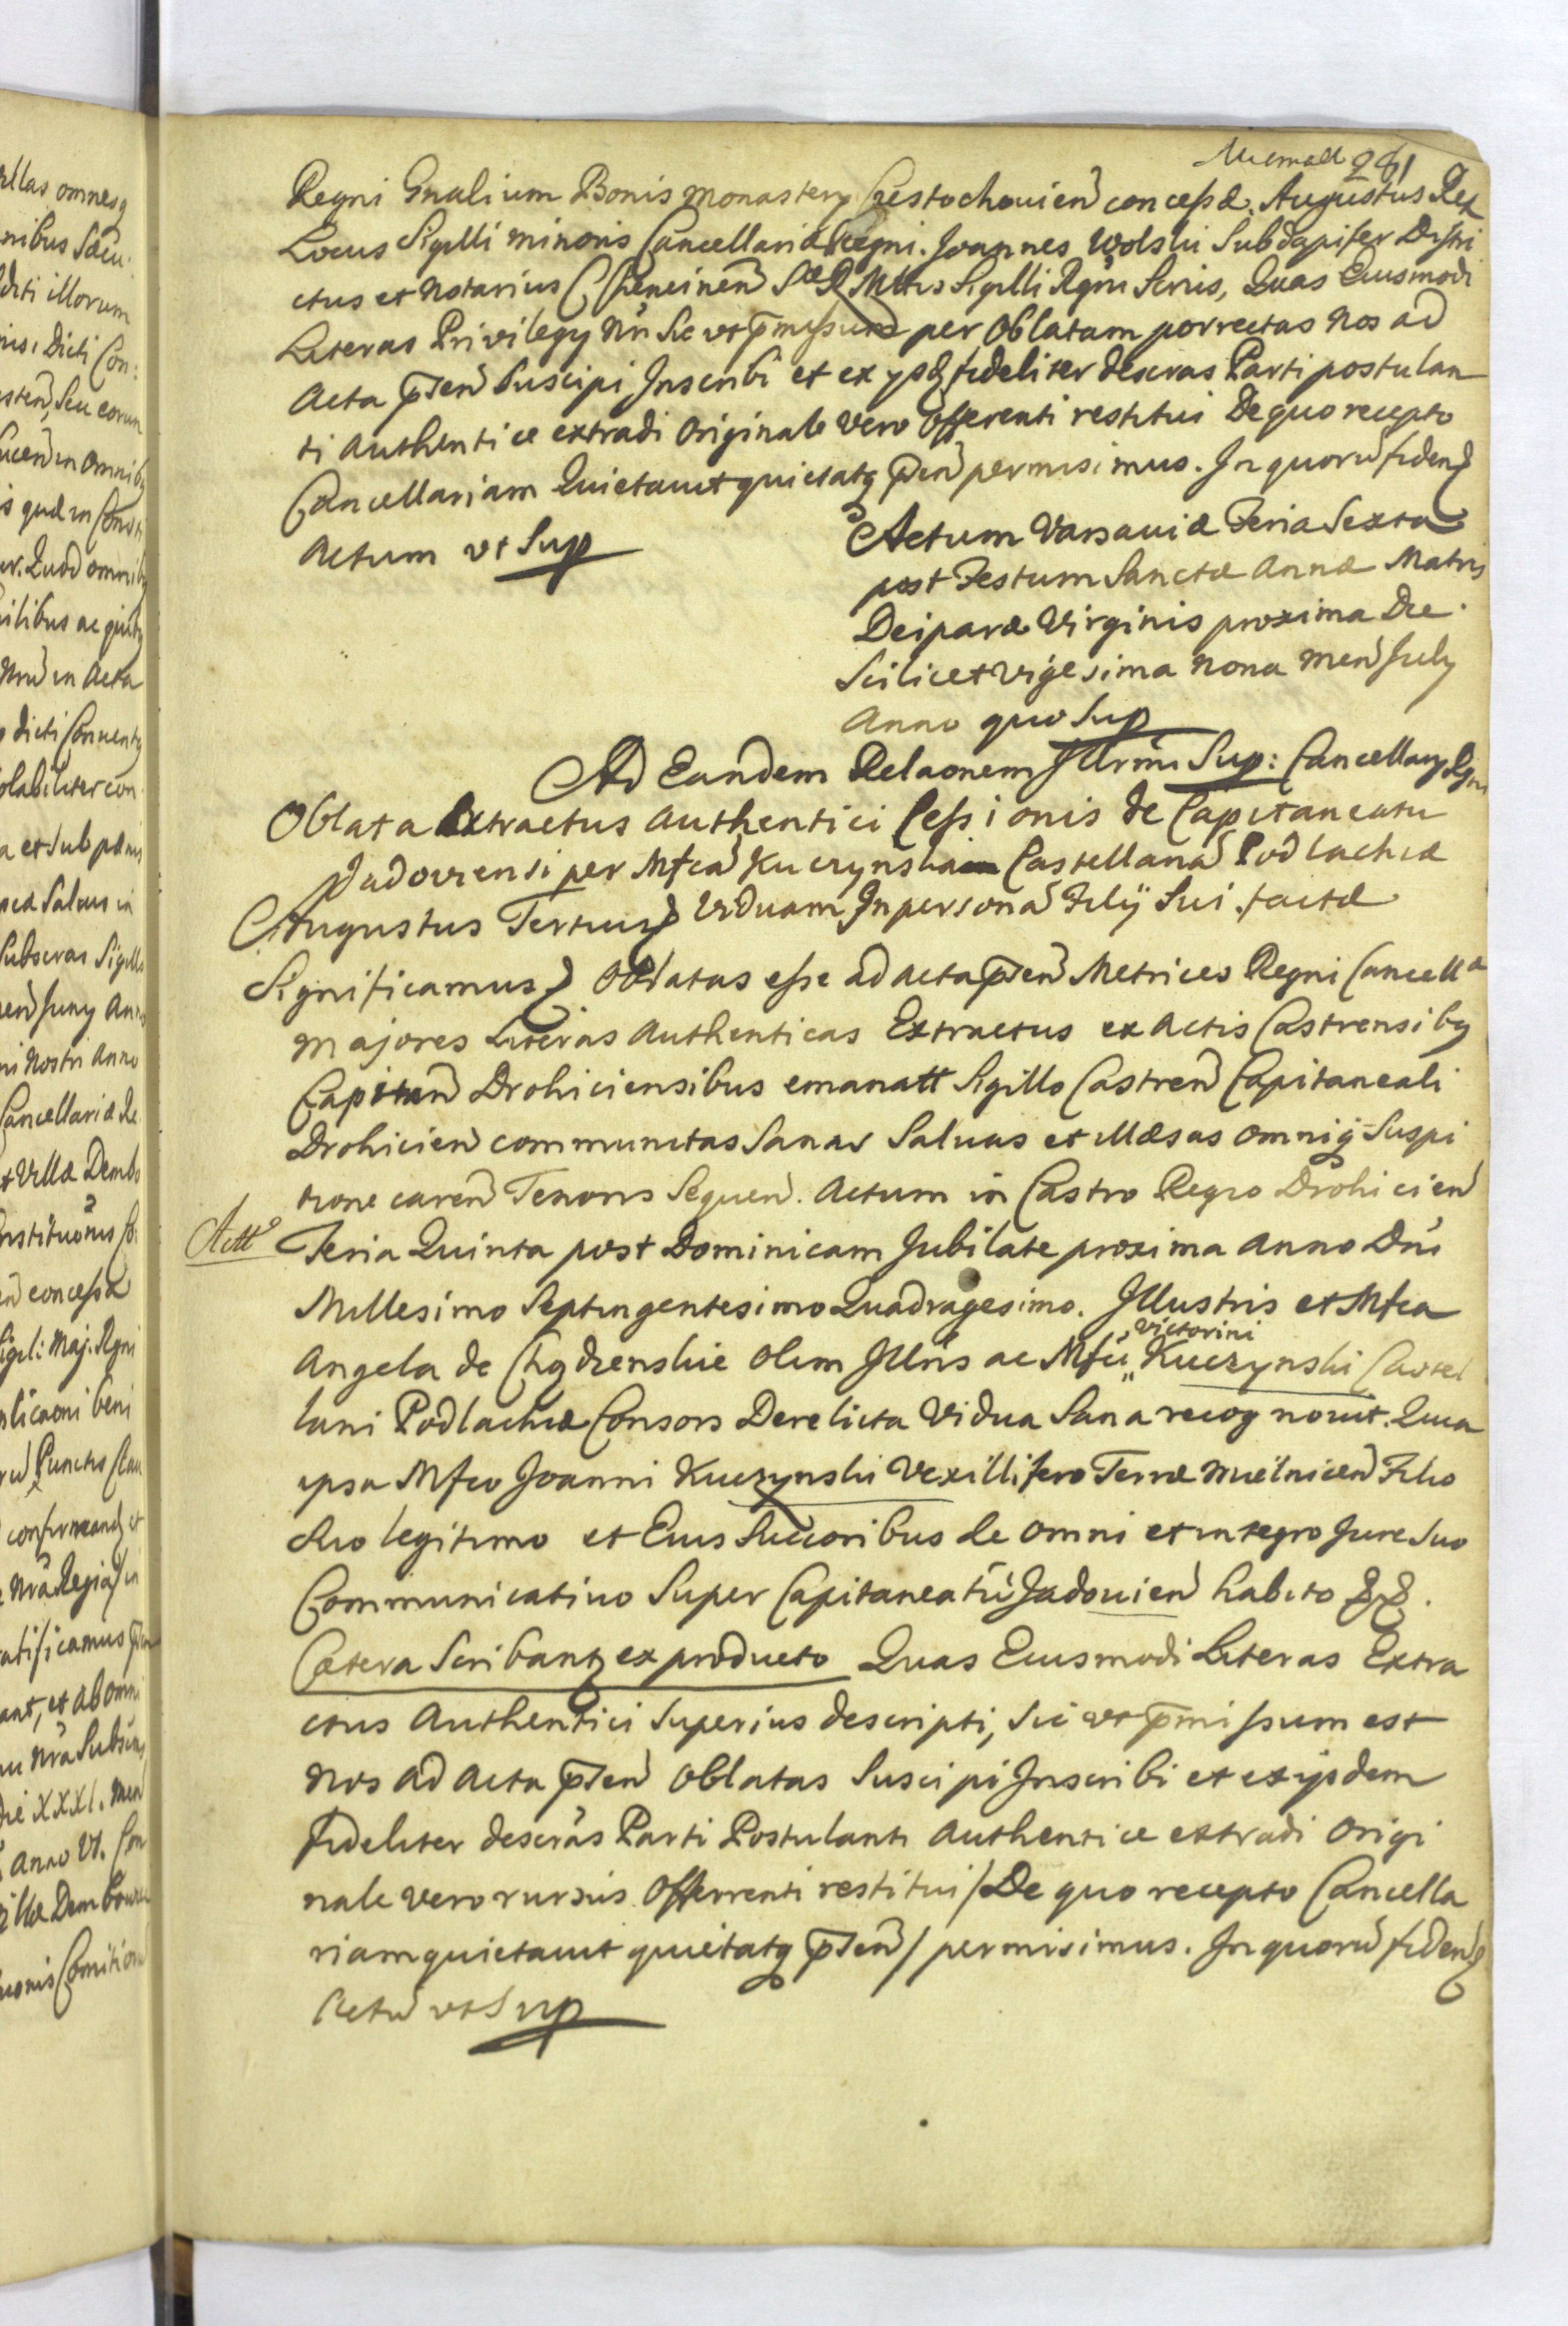 281
Regni Gnalium Bonis Monastery Cęstochovien concessæ. Augustus Rex
Locus Sigilli minoris Cancellariæ Regni. Joannes Wolski Subdapifer Distri
ctus et Notarius Chencinen SæRMttis Sigilli Regni Scrius, Quas Eiusmodi
Literas Privilegy Nri Sic ut pmissum per Oblatam porrectas Nos ad
Acta pnten Suscipi Inscribi et ex ysd fideliter descras Parti postulan
ti Authentice extradi Originale vero Offerenti restitui De quo recepto
Cancellariam Quietavit quietatq pnten permisimus. In quorū fidem
Actum ut Sup
Actum Varsaviæ Feria Sexta
post Festum Sanctæ Annæ Matris
Deiparæ Virginis proxima Die
Scilicet vigesima nona men July
Anno quo Sup
Ad Eandem Relaonem Illrmi Sup: Cancellary Rgni
Oblata Extractus Authentici Cessionis de Capitaneatu
Jadoviensi per Mfcā Kuczynska Castellanā Podlachiæ
Augustus Tertius Viduam In personā Filÿ Sui factæ
Significamus Oblatas esse ad acta pnten Metrices Regni Cancellæ
Majores Literas Authenticas Extractus ex Actis Castrensibq
Capitan Drohiciensibus emanatt Sigillo Castren Capitaneali
Drohicien communitas Sanas Salvas et illæsas omniq Suspi
tione caren Tenoris Sequen. Actum in Castro Regio Drohicien
Actt
Feria Quinta post Dominicam Jubilate proxima Anno Dni
Millesimo Septingentesimo Quadragesimo. Illustris et Mfca
Victorini
Angela de Chądzenskie olim Illris ac Mfci „ Kuczynski Castel
lani Podlachiæ Consors Derelicta Vidua Sana recognovit. Quia
ipsa Mfco Joanni Kuczynski Vexillifero Terræ Mielnicen Filio
Suo legitimo et Eius Succoribus de omni et integro Jure Suo
Communicativo Super Capitaneatū Jadovien habito &&.
Cætera Scribantq ex producto Quas Eiusmodi Literas Extra
ctus Authentici Superius descripti, Sic ut pmissum est
Nos ad Acta pnten Oblatas Suscipi Inscribi et ex ijsdem
fideliter descras Parti Postulanti Authentice extradi Origi
nale vero rursus Offerrenti restitui / De quo recepto Cancella
riam quietavit quietatq pnten / permisimus. In quorū fidem
Actū ut Sup